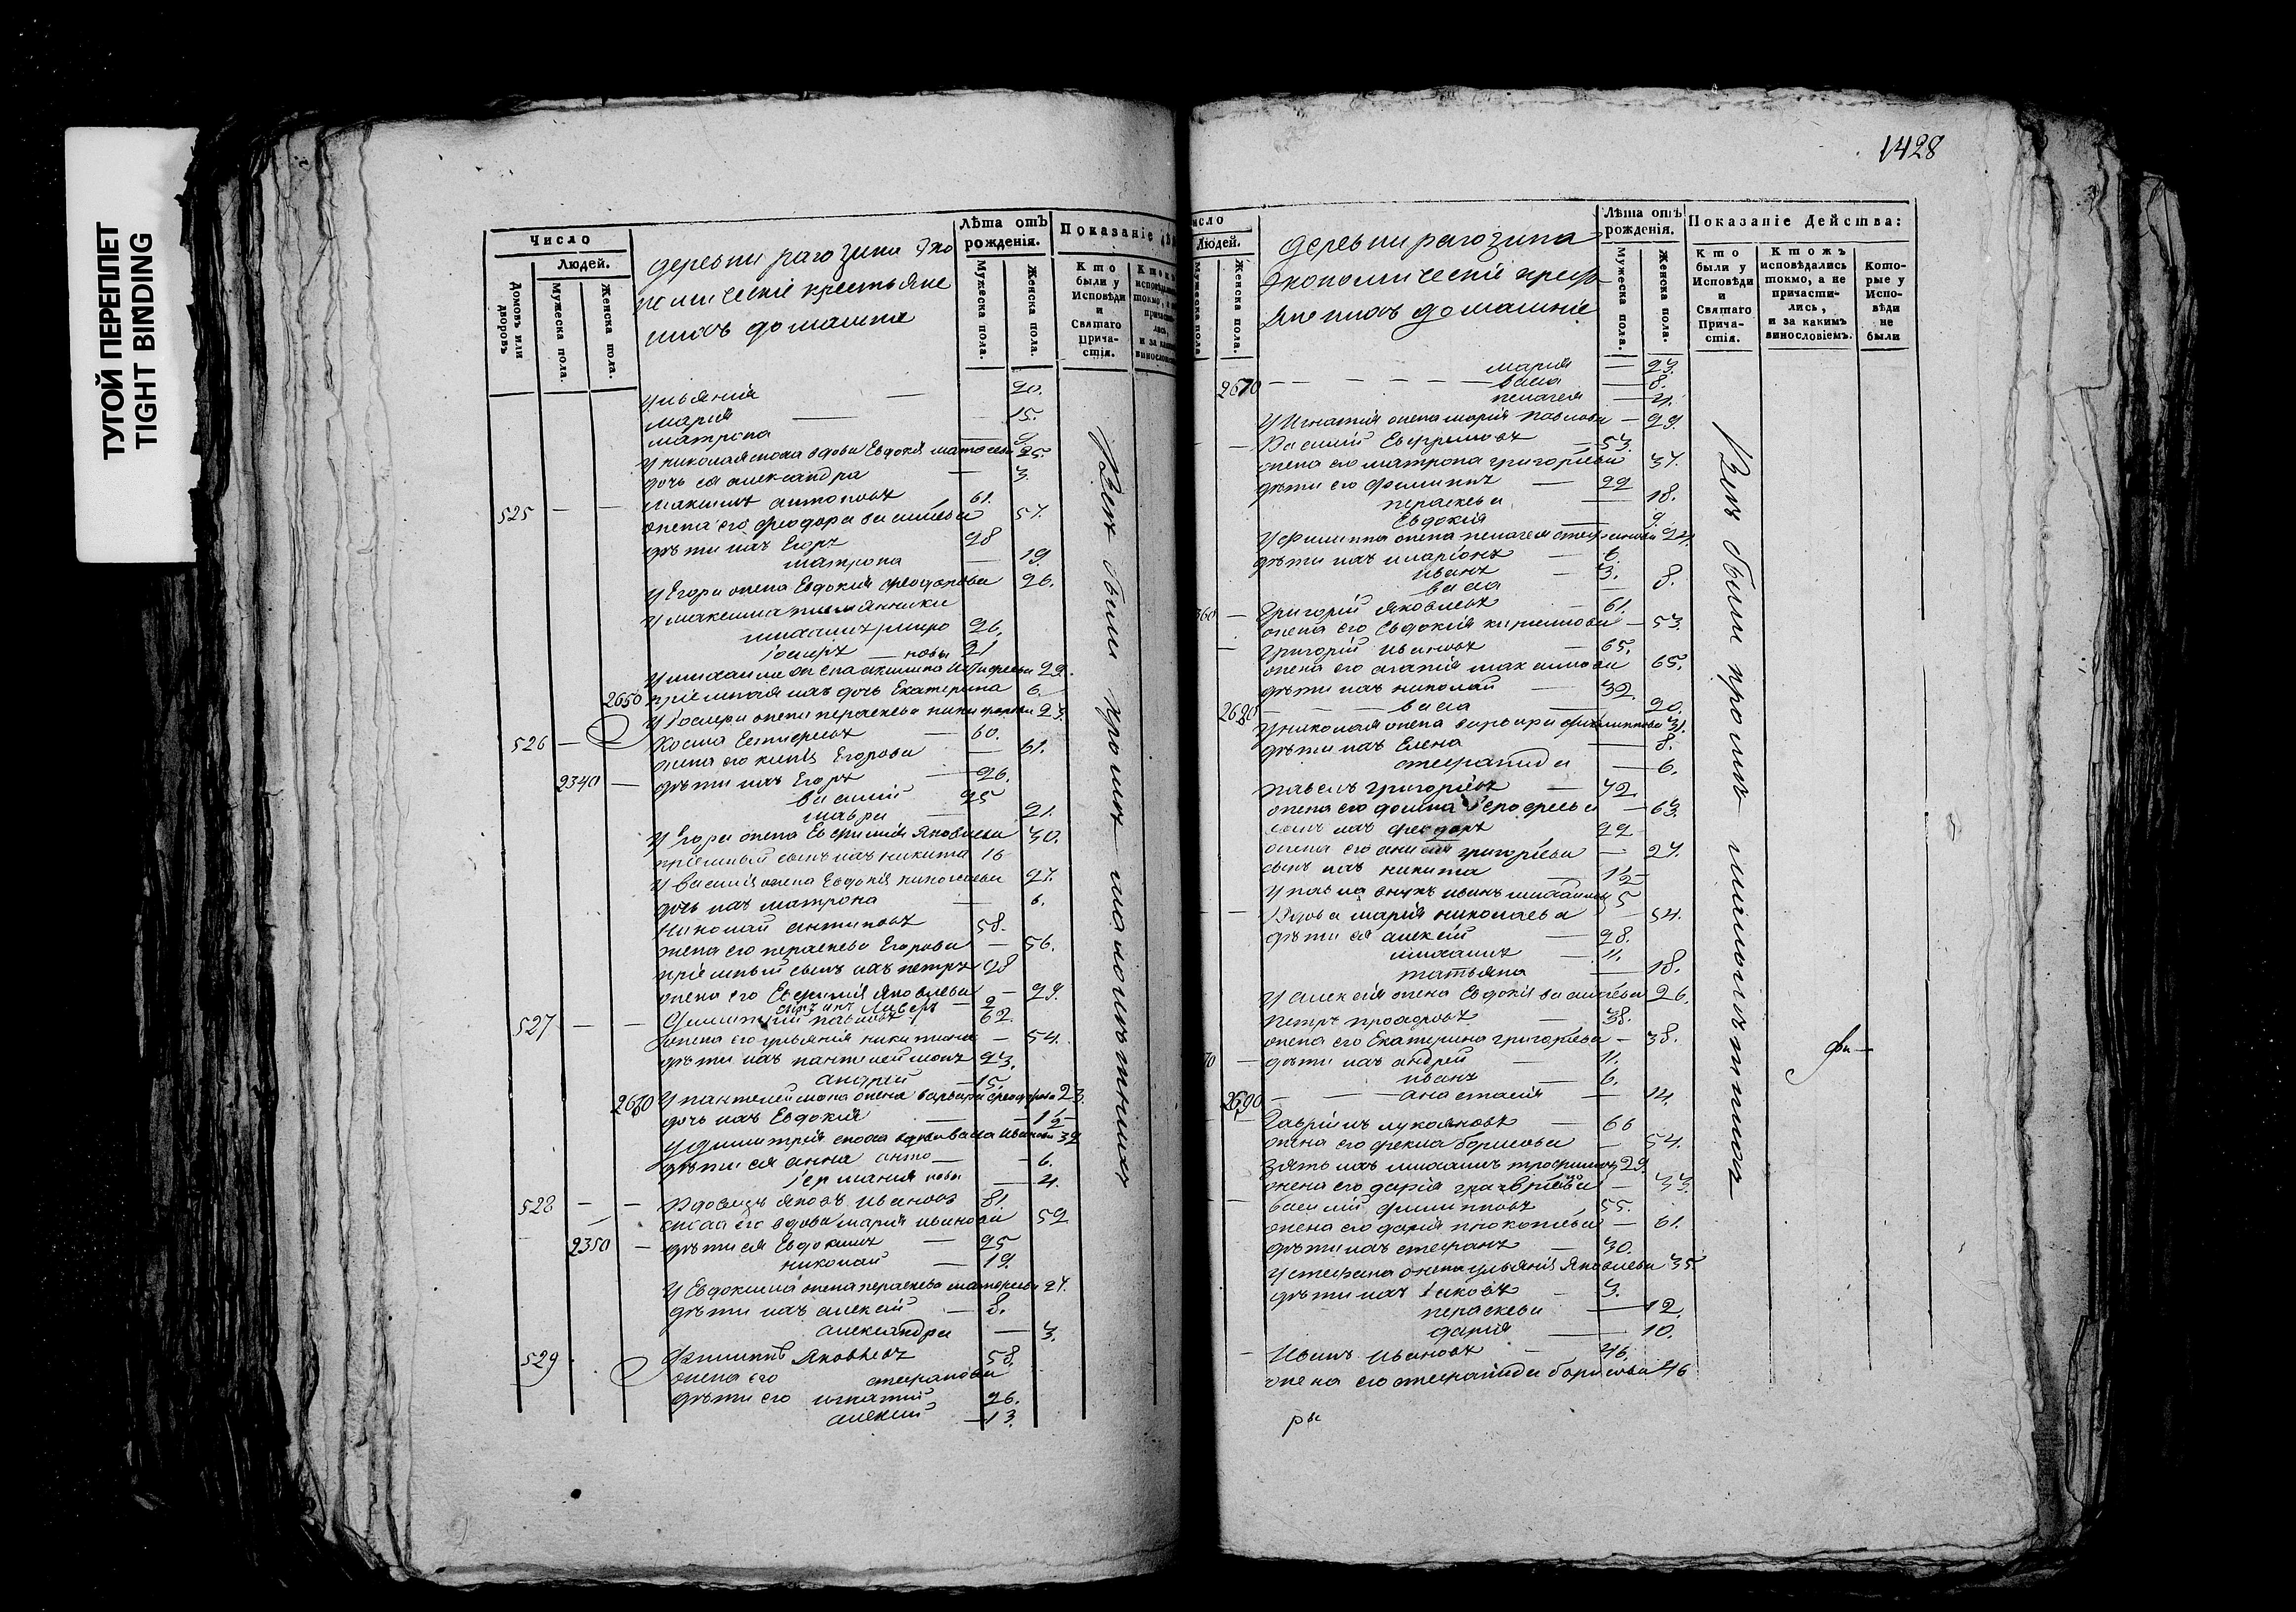 ТУГОЙ ПЕРЕПЛЕТ
TIGHT BINDING
Число
Людей.
Домовъ или дворовъ
Мужеска пола.
Женска пола.
деревни рагозина эко
номическiе крестьяне
ихъ домашнiе
Лѣта отъ рожденiя.
Мужеска пола.
Женска пола.
Показанiе
Кто были у Исповѣди и Святаго Причастiя.
ульянiя — 20.
марiя — 15.
матрона — 9
у николая сноха вдова Евдокiя 25.
дочь ея александра — 3.
525 — — максимъ антоновъ 61.
жена его феодора васильева 57.
дѣти ихъ Егоръ 28
матрона — 19.
у Егора жена Евдокiя феодорова 26.
у максима племянники
михаилъ 26.
iосифъ — новы 21
у михаила жена акилина 29.
2650 прiемная ихъ дочь Екатерина 6.
у iосифа жена параскева никифорова 23.
526 — Косма Евтифѣевъ — 60.
жена его Егорова — 61.
2340 — дѣти ихъ Егоръ — 26.
василiй 25
мавра — 21.
у Егора жена Евфимiя Яковлева 30.
прiемный сынъ ихъ никита 16
у василiя жена Евдокiя николаева 27.
дочь ихъ матрона — 6.
Николай антиповъ 58.
жена его параскева Егорова — 56.
прiемный сынъ ихъ петръ 28
жена его Евфимiя Яковлева — 29.
сынъ ихъ — 2
527 — — Димитрiй павловъ 62.
жена его ульянiя никитина — 54.
дѣти ихъ пантелеймонъ 23.
андрей — 15.
2660 у пантелеймона жена варвара феодорова 23.
дочь ихъ Евдокiя — 1½
у димитрiя сноха вдова васса Иванова 32
дѣти ея анна анто — 6.
новы — 4.
528 — — Вдовецъ Яковъ Ивановъ 81.
сноха его вдова марiя иванова 52
2350 — дѣти ея Евдокимъ — 25
николай — 19.
у Евдокима жена параскева 27.
дѣти ихъ алексiй — 8.
александра — 3.
529 Филиппъ Яковлевъ 58.
жена его стефанова
дѣти его игнатiй 26.
алексiй — 13.
Всѣ были кромѣ малолѣтнихъ
1428
Людей.
Женска пола.
деревни рагозина
Экономическiе крестъ
яне ихъ домашнiе
Лѣта отъ рожденiя.
Мужеска пола.
Женска пола.
Показанiе Дѣйства:
Кто были у Исповѣди и Святаго Причастiя.
Ктожъ исповѣдались токмо, а не причастились, и за какимъ винословiемъ.
Которые у Исповѣди не были
марiя — 23.
2670 — — васса — 8.
пелагея — 4.
у Игнатiя жена марiя павлова — 29.
Василiй Евфимовъ — 53.
жена его матрона григорiева 37.
дѣти его филиппъ — 22
параскева — 18.
Евдокiя — 9.
у филиппа жена пелагея 24.
дѣти ихъ иларiонъ — 6.
иванъ — 3.
васса 8.
360 — Григорiй Яковлевъ — 61.
жена его Евдокiя кирилова — 53.
Григорiй ивановъ — 65.
жена его агафiя максимова 65.
дѣти ихъ николай — 32.
2680 — васса — 20.
у николая жена варвара филиппова 31.
дѣти ихъ Елена — 8.
стефанида — 6.
павелъ григорiевъ — 42
жена его домна — 63.
сынъ ихъ феодоръ 22
жена его григорiева — 27.
сынъ ихъ никита — 1½
у павла внукъ иванъ михайловъ 5
Вдова марiя николаева — 54.
дѣти ея алексiй — 28.
михаилъ — 11.
татьяна — 18.
у алексiя жена Евдокiя васильева 26.
петръ — 38.
жена его Екатерина григорiева — 38.
70 — дѣти ихъ андрей — 11.
иванъ — 6.
2690 — анастасiя — 14.
Гаврiилъ лукояновъ — 66
жена его фекла борисова — 54.
зять ихъ михаилъ трофимовъ 29.
жена его дарiя гаврiилова — 33.
василiй филипповъ 55.
жена его дарiя прокопiева — 61.
дѣти ихъ стефанъ — 30.
у стефана жена ульянiя Яковлева 35
дѣти ихъ Iаковъ — 3.
параскева — 12.
дарiя — 10.
Иванъ Ивановъ — 46.
жена его стефанида борисова 46
Всѣ были кромѣ малолѣтнихъ